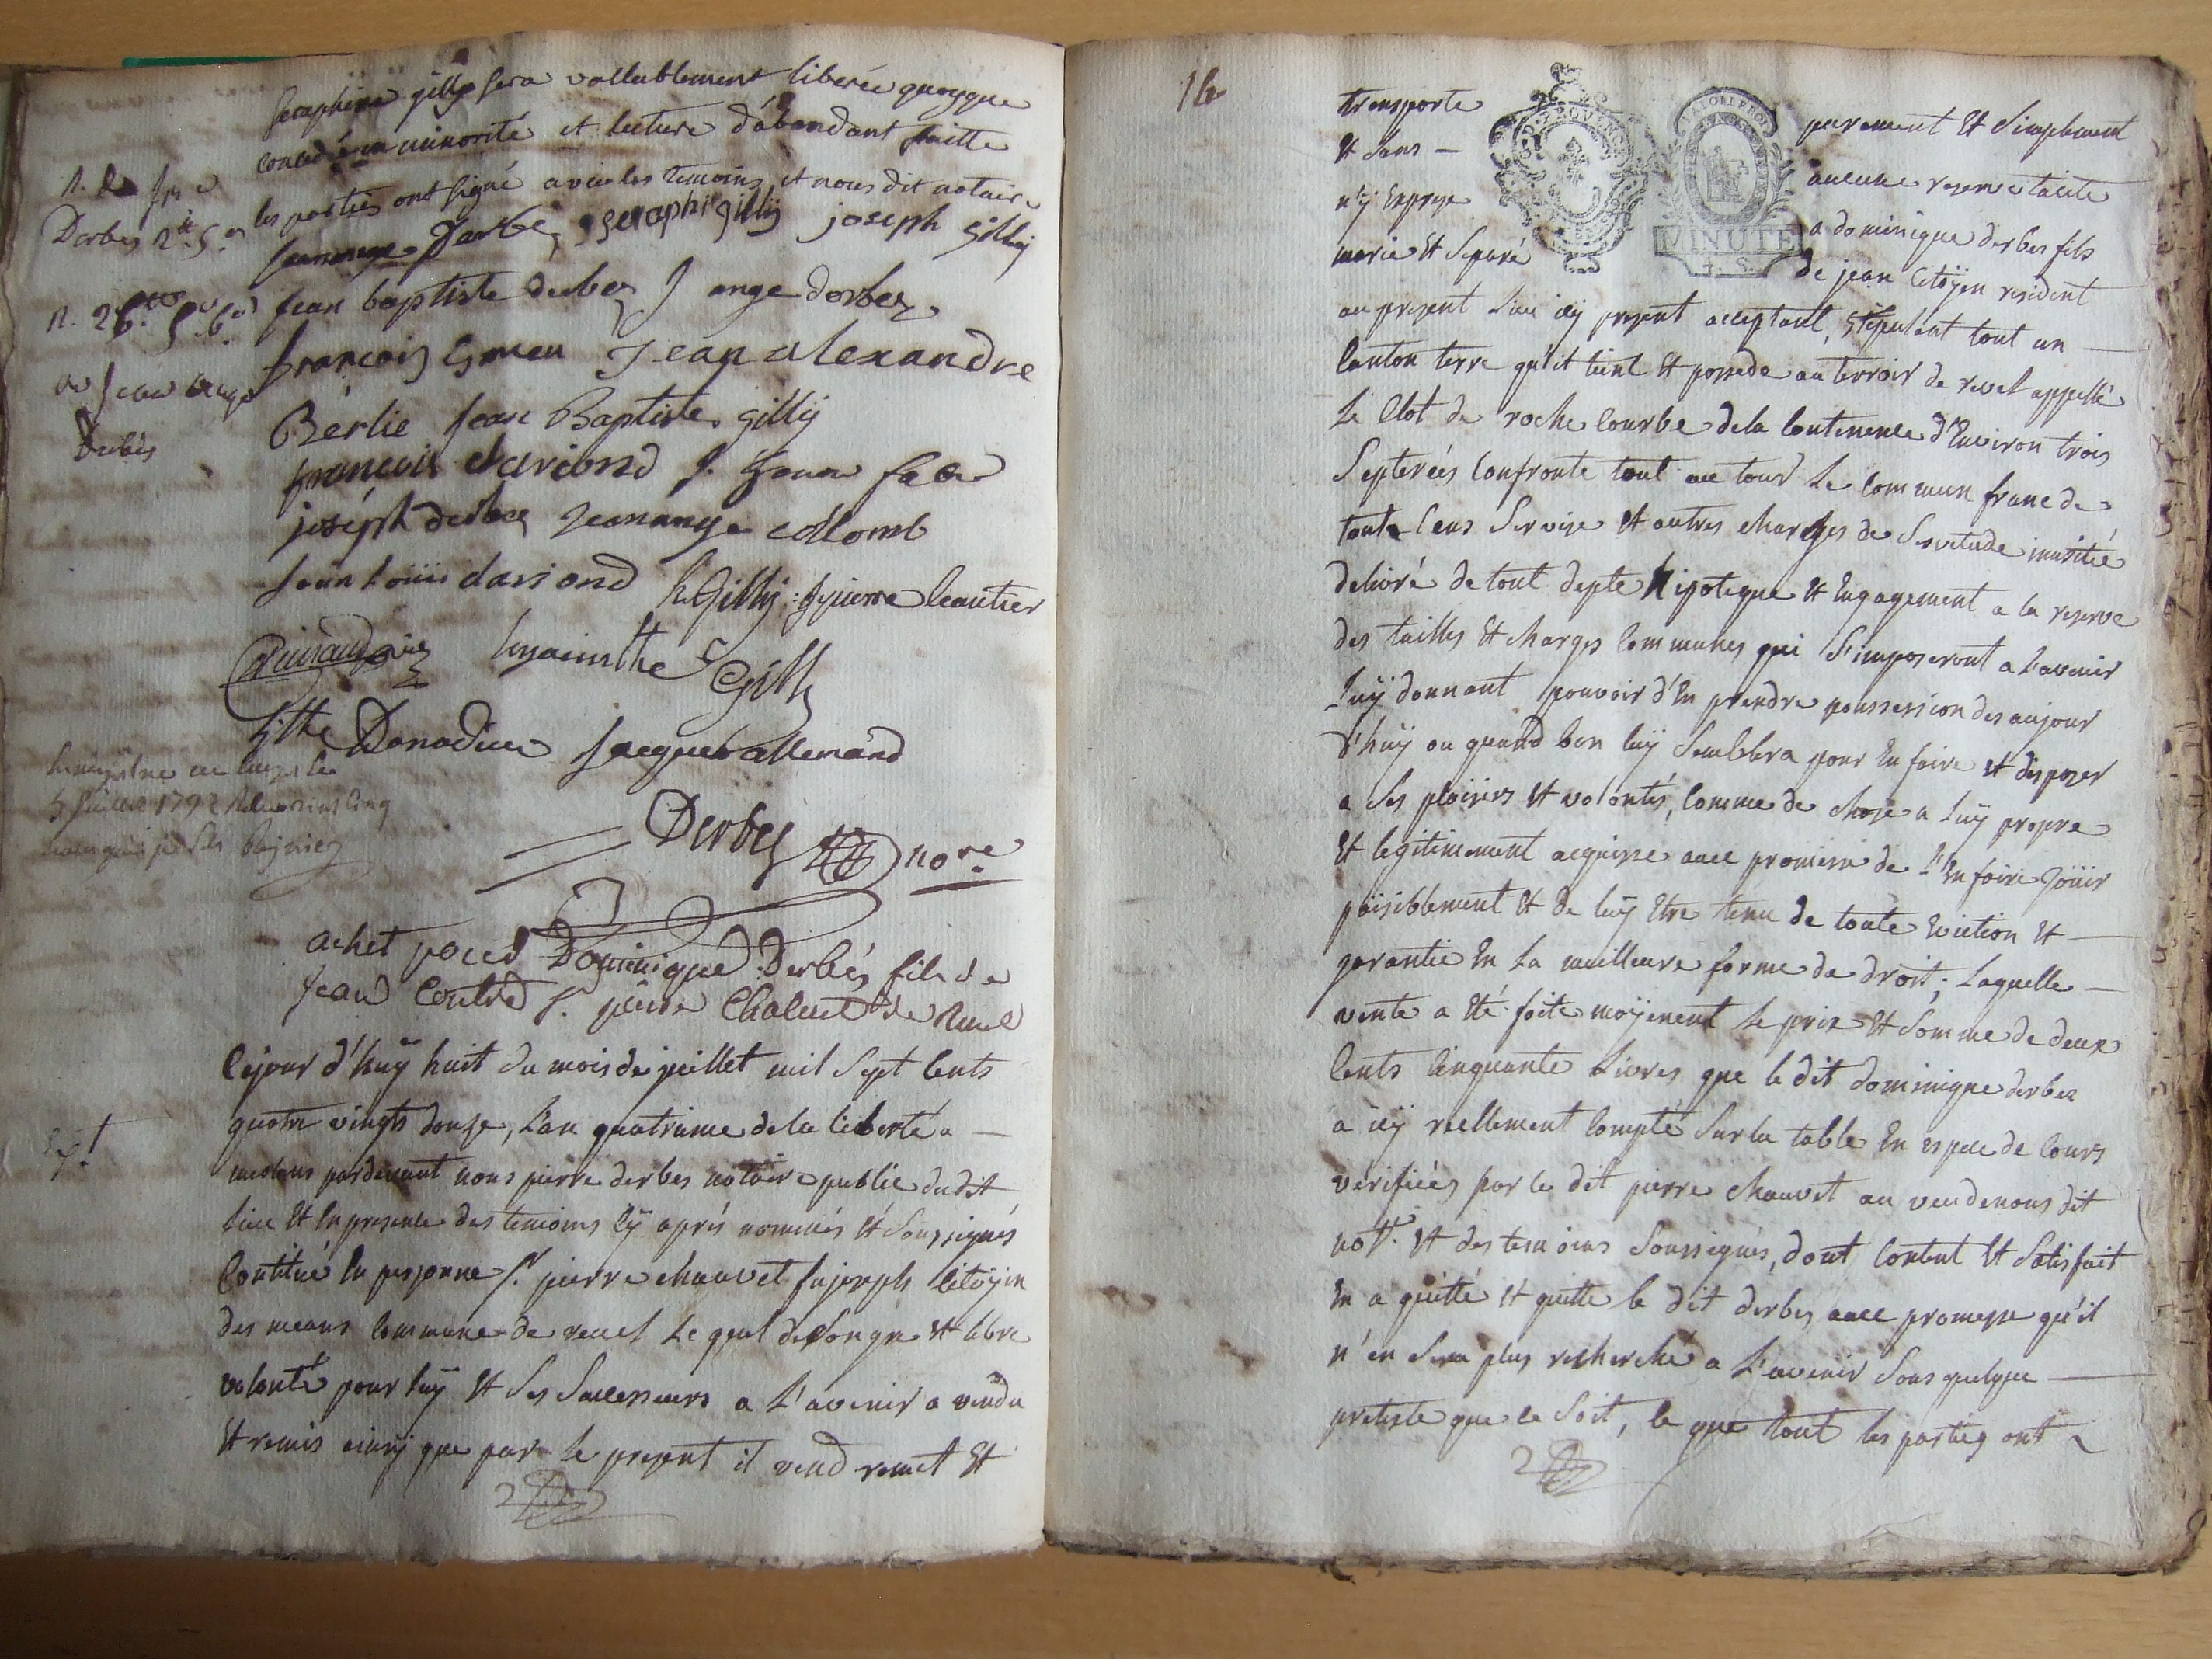 Seraphine gilly sera vallablement liberée quoyque
en minorité et lecture d'abondant faitte
les parties ont signé avec les temoins et nous dit notaire
jeanange Darbes seraphi gillÿ joseph gillÿ
jean baptiste derbes J ange dorbes
françois Jean alexandre
Bérlie Jean Baptiste gillÿ
françois dariond
joséph derbes Jeanange collomb
Jean Loüis dariond Gillÿ pierre leautier
hyacinthe Gilly
Donadieu jacques allemand
Derbes nore
n.
Derbes
n.
jean ange
Derbés
Enregistre
juillet 1792
achet pour Dominique Derbés fils de
Jean Contre Sr. pierre Chaluet de Revel
Exp.t
Cejour d'huÿ huit du mois de juillet mil Sept Cents
quatre vingts douze, L'an quatrieme de la liberté a
meolans pardevant nous pierre derbes notaire public dudit
lieu Et En presence des temoins Cÿ aprés nommés Et Soussignés
Constitué En personne Sr. pierre chauvet fu joseph Citoÿen
des means Commune de revel Le quel de son gre Et libre
volonté pour luÿ Et Ses Successeurs a L'avenir a vendu
Et remis ainsÿ que par Le present il vend remet Et
16
transporte purement Et Simplement
Et Sans aucune reserve tacite
n'ÿ Expresse a dominique derbes fils
marié Et Separé de jean Citoÿen resident
MINUTE
4. S.
au present Lieu icÿ present acceptant, Stipulant tout un
Canton terre qu'il tient Et possede au terroir de revel appellé
Le Clot de roche Courbe dela Contenence d'Environ trois
Septerées Confronte tout au tour Le Commun franc de
toute Cens Servise Et autres charges de Servitude inusitée
delivré de tout depte hipoteque Et Engagement a la reserve
des tailles Et charges Communes qui S'imposeront a L'avenir
Luÿ donnant pouvoir d'En prendre poussession des aujour
d'huÿ ou quand bon luÿ Semblera pour En faire Et disposer
a Ses plaisirs Et volontés, Comme de chose a Luÿ propre
Et legitimement acquise avec promesse de L'En faire Joüir
paisiblement Et de luÿ Etre tenu de toute Eviction Et
garantie En La meilleure forme de droit; Laquelle
vente a Eté faite moÿenent Le prix Et Somme de deux
Cents Cinquante Livres que le dit dominique derbes
a icÿ reellement Compté Sur la table En espece de Cours
verifiées par le dit pierre chauvet au veu de nous dit
notre. Et des temoins Soussignés, dont Content Et Satisfait
En a quitté Et quitte le dit derbes avec promesse qu'il
n'en Sera plus recherché a L'avenir Sous quelque
preteste que ce Soit, ce que tout les parties ont